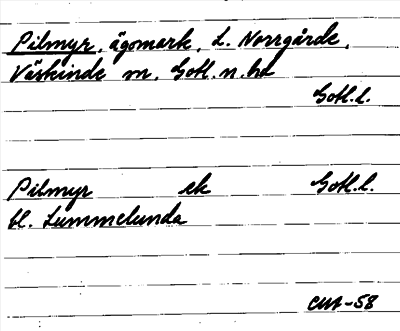 Pilmyr, ägomark, L. Norrgårde,
Väskinde sn, Gotl. n. hd
Gotl. l.
Pilmyr ek Gotl. l.
bl. Lummelunda
CUA-58